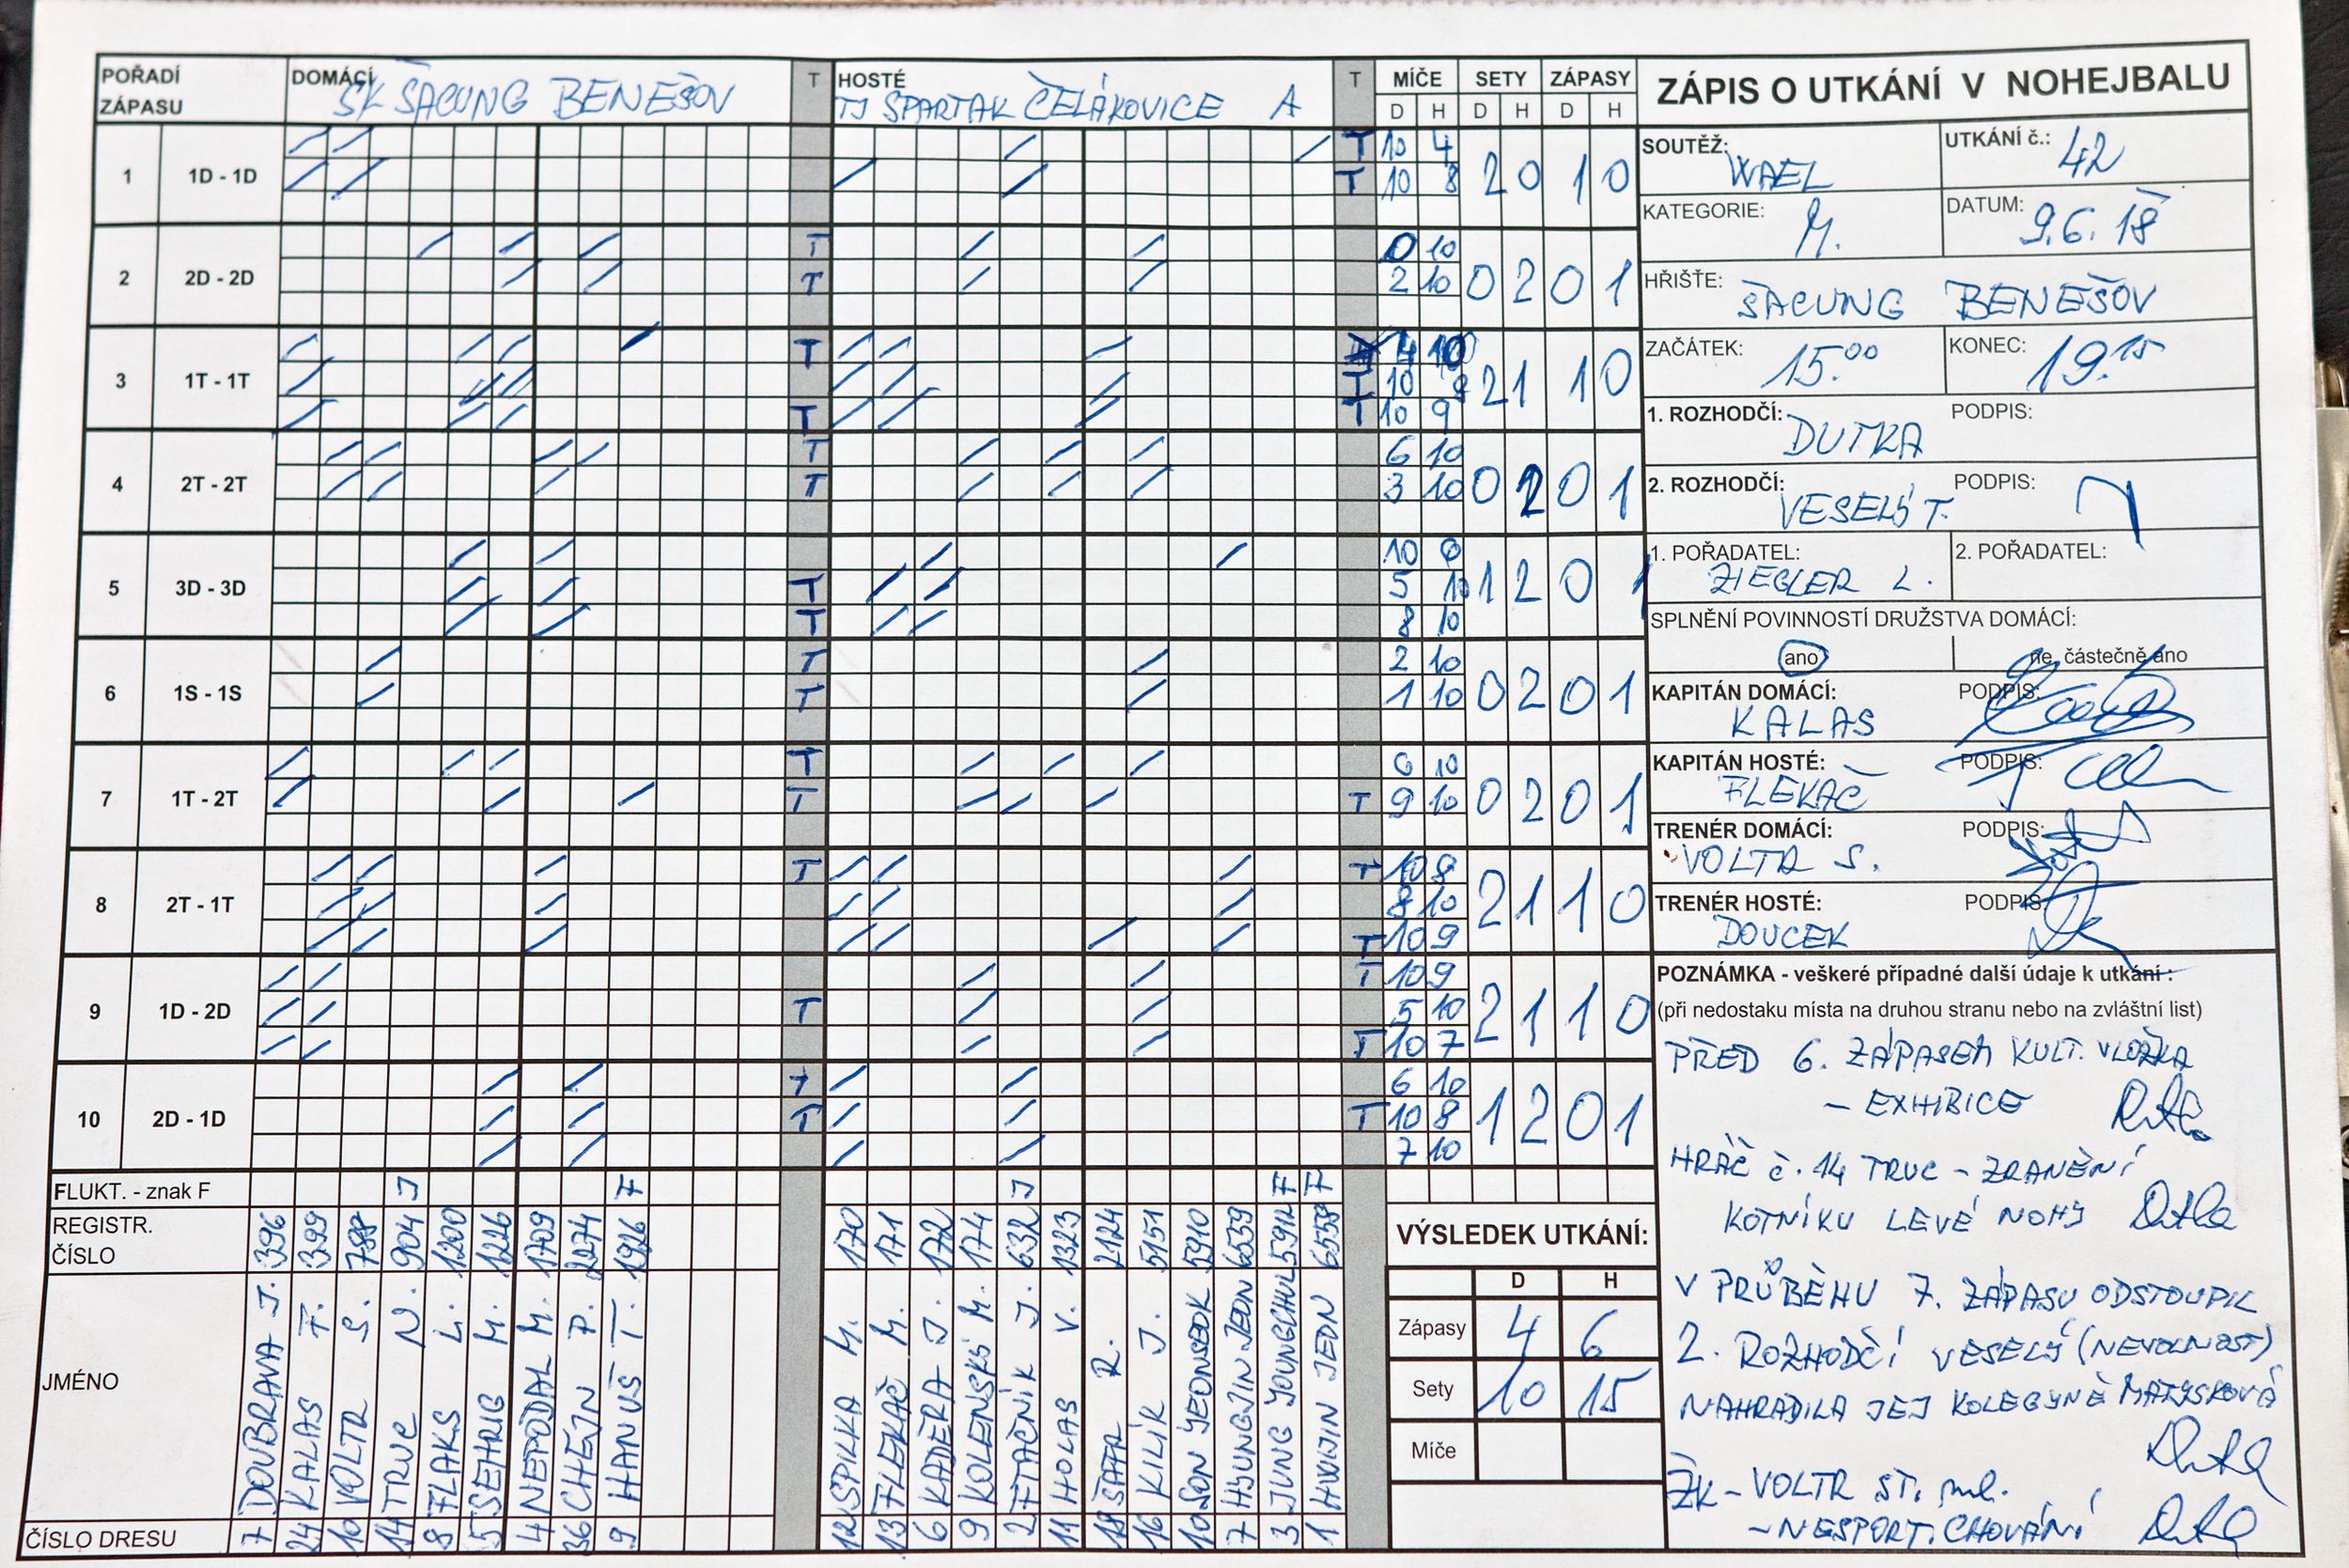 POŘADÍ ZÁPASU DOMÁCÍ SK ŠACUNG BENEŠOV T HOSTÉ TJ SPARTAK ČELÁKOVICE A T MÍČE SETY ZÁPASY
D H D H D H
1 1D - 1D T 10 4 2 0 1 0
T 10 8
2 2D - 2D T 0 10 0 2 0 1
T 2 10
3 1T - 1T T 4 10 2 1 1 0
T 10
T T 10 9
4 2T - 2T T 6 10 0 2 0 1
T 3 10
5 3D - 3D 10 1 2 0 1
T 5 10
T 8 10
6 1S - 1S T 2 10 0 2 0 1
T 1 10
7 1T - 2T T 6 10 0 2 0 1
T T 9 10
8 2T - 1T T T 10 2 1 1 0
8 10
T 10 9
9 1D - 2D T 10 9 2 1 1 0
T 5 10
T 10 7
10 2D - 1D T 6 10 1 2 0 1
T T 10 8
7 10
FLUKT. - znak F J F J F F
REGISTR. ČÍSLO 396 399 788 904 1200 1226 1709 2274 1926 170 171 172 174 632 1323 2124 5151 5910 6539 5912 6558
JMÉNO DOUBRAVA J. KALAS F. VOLTR S. TRUC N. FLAKS L. SEHRIG M. NEPODAL M. CHEJN P. HANUŠ T. SPILKA M. FLEKAČ M. KADĚRA J. KOLENSKÝ M. FTAČNÍK J. HOLAS V. ŠATR R. KILÍK J. SON YEONSEOK HYUNGJIN JEON JUNG YOUNGCHUL HWIJIN JEON
ČÍSLO DRESU 7 24 10 14 8 5 4 36 9 12 13 6 9 2 11 18 16 10 7 3 1
VÝSLEDEK UTKÁNÍ:
D H
Zápasy 4 6
Sety 10 15
Míče
ZÁPIS O UTKÁNÍ V NOHEJBALU
SOUTĚŽ: WAEL UTKÁNÍ č.: 42
KATEGORIE: M. DATUM: 9.6.18
HŘIŠTE: ŠACUNG BENEŠOV
ZAČÁTEK: 15.00 KONEC: 19.15
1. ROZHODČÍ: DUTKA PODPIS:
2. ROZHODČÍ: VESELÝ T. PODPIS:
1. POŘADATEL: ZIEGLER L. 2. POŘADATEL:
SPLNĚNÍ POVINNOSTÍ DRUŽSTVA DOMÁCÍ:
ano ne, částečně ano
KAPITÁN DOMÁCÍ: KALAS PODPIS:
KAPITÁN HOSTÉ: FLEKAČ PODPIS:
TRENÉR DOMÁCÍ: VOLTR S. PODPIS:
TRENÉR HOSTÉ: DOUCEK PODPIS:
POZNÁMKA - veškeré případné další údaje k utkání :
(při nedostaku místa na druhou stranu nebo na zvláštní list)
PŘED 6. ZÁPASEM KULT. VLOŽKA
- EXHIBICE
HRÁČ č. 14 TRUC - ZRANĚNÍ
KOTNÍKU LEVÉ NOHY
V PRŮBĚHU 7. ZÁPASU ODSTOUPIL
2. ROZHODČÍ VESELÝ (NEVOLNOST)
NAHRADILA JEJ KOLEGYNĚ MATYSKOVÁ
ŽK - VOLTR ST. ml.
- NESPORT. CHOVÁNÍ